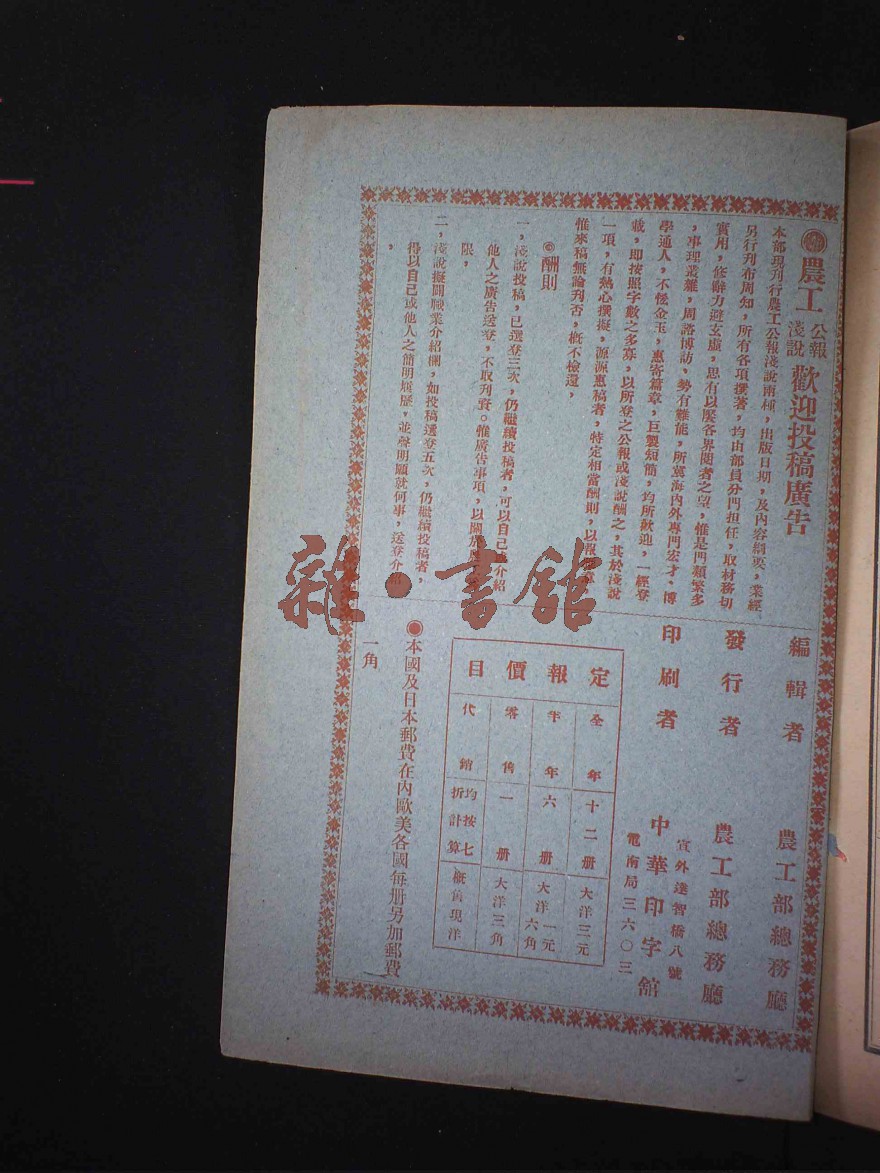 農工公報淺說歡迎投稿廣告
本部現刋行農工公報淺說兩種，出版日期，及內容綱要，業經
另行刋布周知，所有各項撰著，均由部員分門担任，取材務切
實用，修辭力避玄虛，思有以饜各界閱者之望，惟是門類繁多
，事理叢雜，周諮博訪，勢有難能，所冀海內外專門宏才，博
學通人，不恡金玉，惠寄篇章，巨製短簡，均所歡迎，一經登
載，即按照字數之多寡，以所登之公報或淺說酬之，其於淺說
一項，有熱心撰擬，源源惠稿者，特定相當酬則，以
惟來稿無論刋否，槪不檢還，
酬則
一，淺說投稿，已選登三次，仍繼續投稿者，可以自己或介紹
他人之廣告送登，不取刋費。惟廣告事項，以關於
限，
二，淺說擬闢職業介紹欄，如投稿選登五次，仍繼續投稿者，
得以自己或他人之簡明履歷，並聲明願就何事，送登介紹
，
編輯者 農工部總務廳
發行者 農工部總務廳
印刷者 中華印字館
宣外達智橋八號
電南局三六〇三
定報價目
全年 十二册 大洋三元
半年 六册 大洋一元六角
零售 一册 大洋三角
代銷 均按七折計算 槪售現洋
本國及日本郵費在內歐美各國每册另加郵費
一角
雜·書館